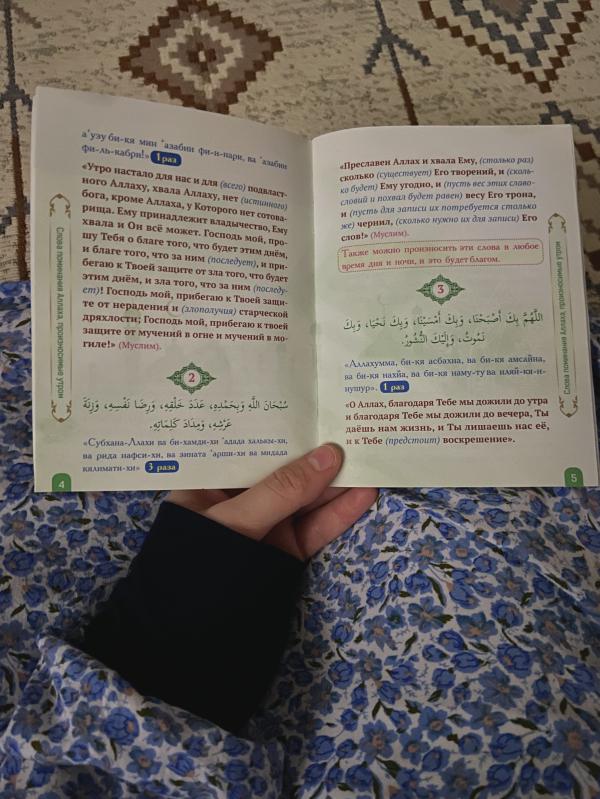 а'узу би-кя мин 'азабин фи-н-нари, ва 'азабин
фи-ль-кабри!» 1 раз
«Утро настало для нас и для (всего) подвласт-
ного Аллаху, хвала Аллаху, нет (истинного)
бога, кроме Аллаха, у Которого нет сотова-
рища. Ему принадлежит владычество, Ему
хвала и Он всё может. Господь мой, про-
шу Тебя о благе того, что будет этим днём,
и благе того, что за ним (последует), и при-
бегаю к Твоей защите от зла того, что будет
этим днём, и зла того, что за ним (последу-
ет)! Господь мой, прибегаю к Твоей защи-
те от нерадения и (злополучия) старческой
дряхлости; Господь мой, прибегаю к твоей
защите от мучений в огне и мучений в мо-
гиле!» (Муслим).
2
سُبْحَانَ اللَّهِ وَبِحَمْدِهِ، عَدَدَ خَلْقِهِ، وَرِضَا نَفْسِهِ، وَزِنَةَ
عَرْشِهِ، وَمِدَادَ كَلِمَاتِهِ.
«Субхана-Ллахи ва би-хамди-хи 'адада халькы-хи,
ва рида нафси-хи, ва зината 'арши-хи ва мидада
кялимати-хи» 3 раза
Слова поминания Аллаха, произносимые утром
4
«Преславен Аллах и хвала Ему, (столько раз)
сколько (существует) Его творений, и (сколь-
ко будет) Ему угодно, и (пусть вес этих слово-
словий и похвал будет равен) весу Его трона,
и (пусть для записи их потребуется столько
же) чернил, (сколько нужно их для записи) Его
слов!» (Муслим).
Также можно произносить эти слова в любое
время дня и ночи, и это будет благом.
3
اللَّهُمَّ بِكَ أَصْبَحْنَا، وَبِكَ أَمْسَيْنَا، وَبِكَ نَحْيَا، وَبِكَ
نَمُوتُ، وَإِلَيْكَ النُّشُورُ.
«Аллахумма, би-кя асбахна, ва би-кя амсайна,
ва би-кя нахйа, ва би-кя наму-ту ва иляй-ки-н-
нушур». 1 раз
«О Аллах, благодаря Тебе мы дожили до утра
и благодаря Тебе мы дожили до вечера, Ты
даёшь нам жизнь, и Ты лишаешь нас её,
и к Тебе (предстоит) воскрешение».
Слова поминания Аллаха, произносимые утром
5